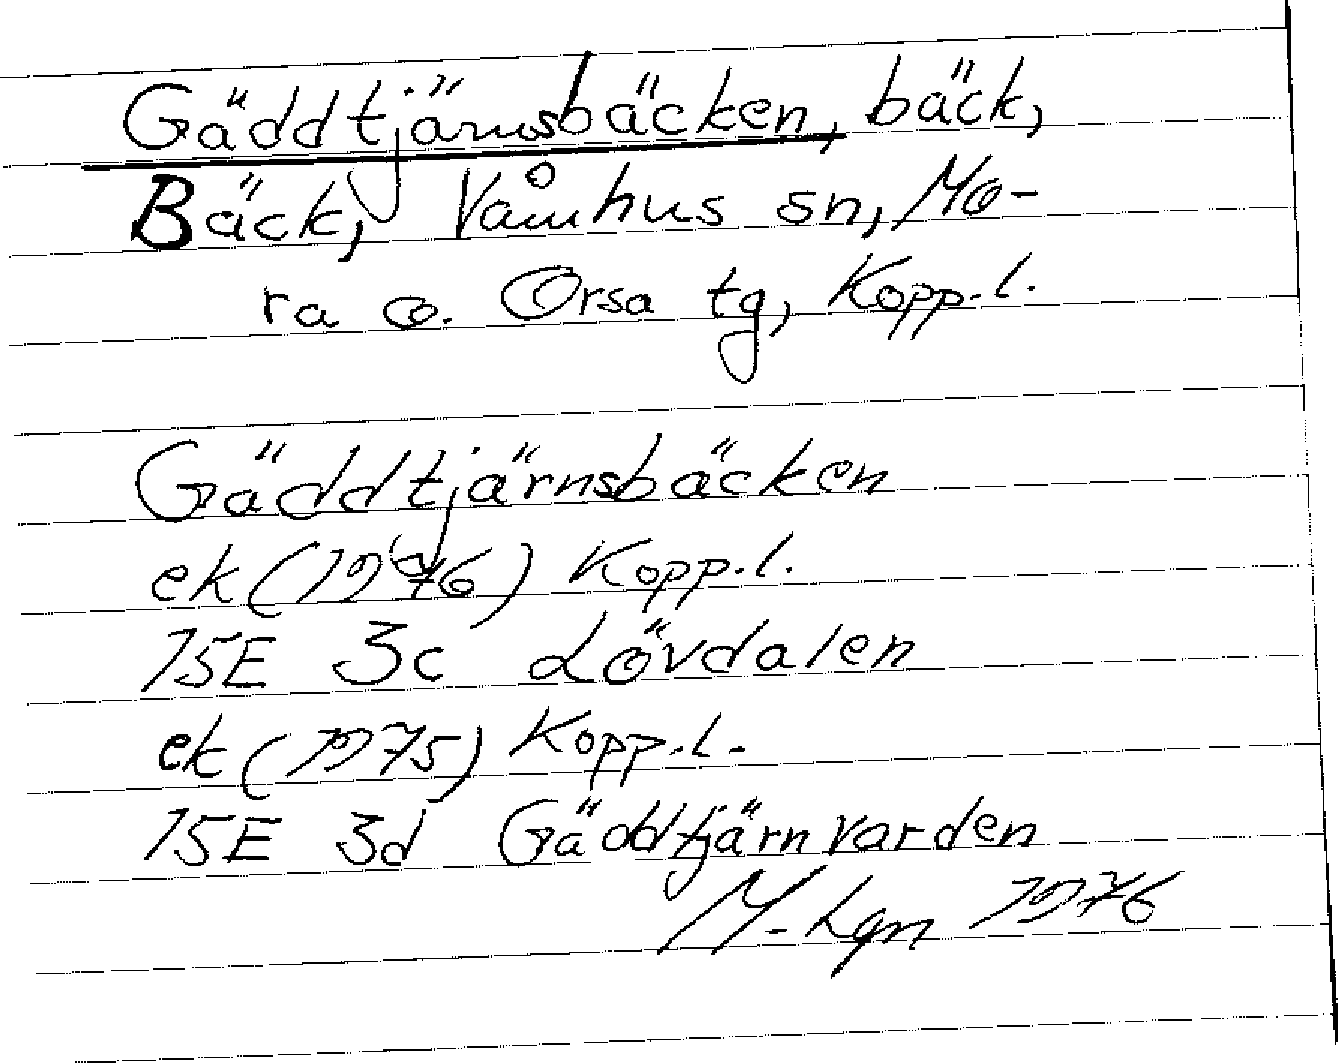 Gäddtjärnsbäcken, bäck,
Bäck, Våmhus sn, Mo-
ra o. Orsa tg, Kopp.l.
Gäddtjärnsbäcken
ek (1976) Kopp.l.
15E 3c Lövdalen
ek (1975) Kopp.l.
15E 3d Gäddtjärnvarden
M. Lgn 1976